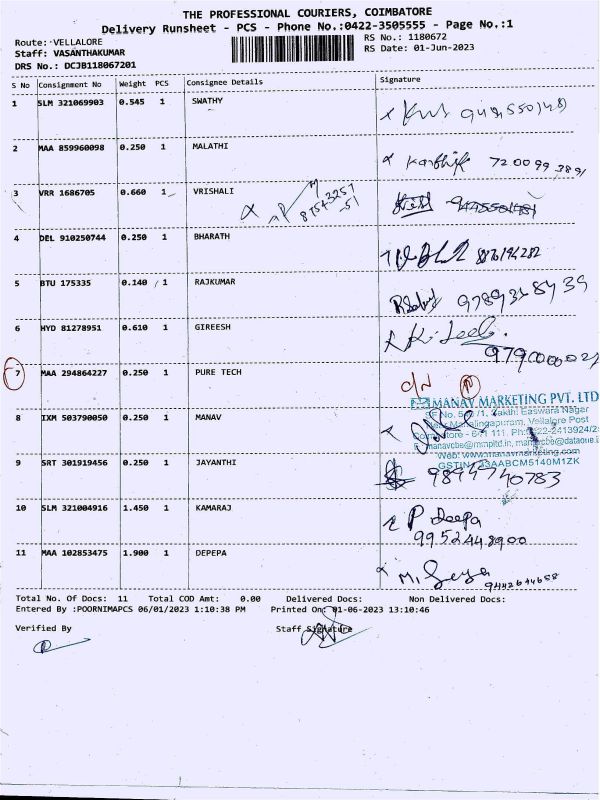 THE PROFESSIONAL COURIERS, COIMBATORE
Delivery Runsheet - PCS - Phone No.:0422-3505555 - Page No.:1
Route: VELLALORE
RS No.: 1180672
Staff: VASANTHAKUMAR
RS Date: 01-Jun-2023
DRS No.: DCJB118067201
S No Consignment No Weight PCS Consignee Details Signature
1 SLM 321069903 0.545 1 SWATHY
2 MAA 859960098 0.250 1 MALATHI Karthik 7200993891
3 VRR 1686705 0.660 1 VRISHALI
4 DEL 910250744 0.250 1 BHARATH
5 BTU 175335 0.140 1 RAJKUMAR
6 HYD 81278951 0.610 1 GIREESH
7 MAA 294864227 0.250 1 PURE TECH
MANAV MARKETING PVT. LTD
8 IXM 503790050 0.250 1 MANAV
Web: www.manavmarketing.com
GSTIN: 33AABCM5140M1ZK
9 SRT 301919456 0.250 1 JAYANTHI 9894740783
10 SLM 321004916 1.450 1 KAMARAJ P Deepa
9952448900
11 MAA 102853475 1.900 1 DEPEPA
Total No. Of Docs: 11 Total COD Amt: 0.00 Delivered Docs: Non Delivered Docs:
Entered By :POORNIMAPCS 06/01/2023 1:10:38 PM Printed On: 01-06-2023 13:10:46
Verified By Staff Signature